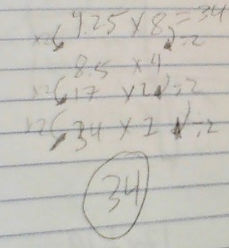 4.25 x 8 = 34
x2 ÷2
8.5 x 4
x2 17 x 2 ÷2
x2 34 x 1 ÷2
34